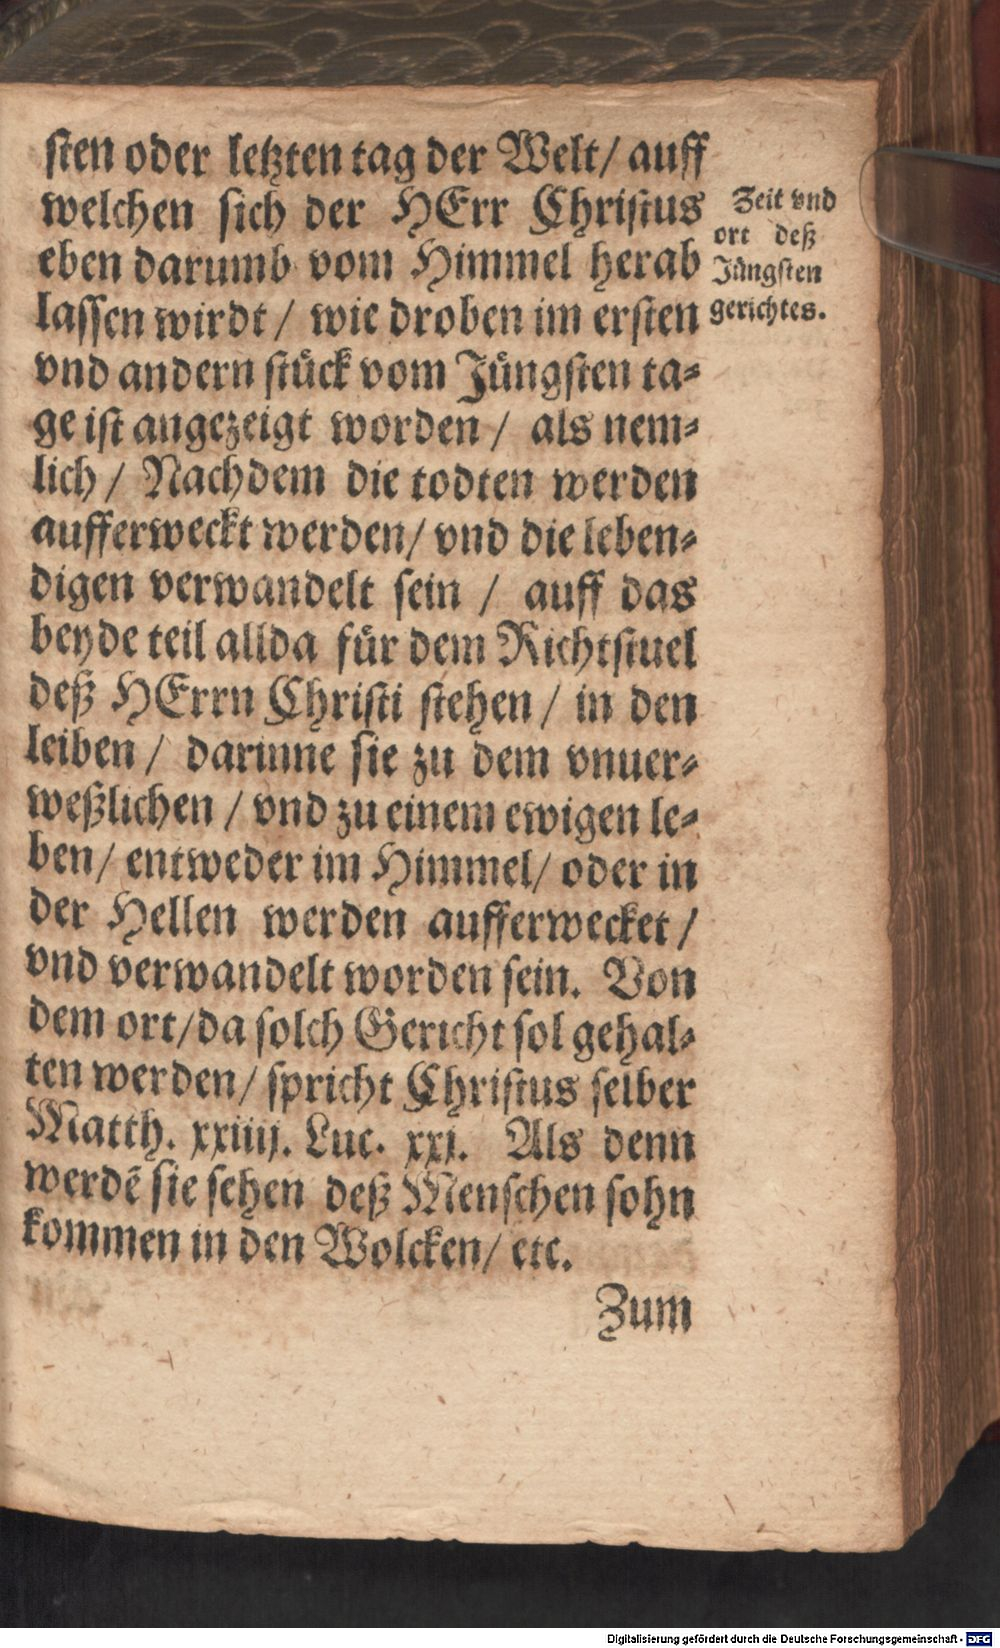 sten oder letzten tag der Welt/ auff
welchen sich der HErr Christus
eben darumb vom Himmel herab
lassen wirdt / wie droben im ersten
vnd andern stück vom Jüngsten ta-
ge ist angezeigt worden / als nem-
lich / Nachdem die todten werden
aufferweckt werden/ vnd die leben-
digen verwandelt sein / auff das
beyde teil allda für dem Richtstuel
deß HErrn Christi stehen / in den
leiben / darinne sie zu dem vnuer-
weßlichen / vnd zu einem ewigen le-
ben/ entweder im Himmel/ oder in
der Hellen werden aufferwecket /
vnd verwandelt worden sein. Von
dem ort/da solch Gericht sol gehal-
ten werden/ spricht Christus selber
Matth. xxiiij. Luc. xxj. Als denn
werdē sie sehen deß Menschen sohn
kommen in den Wolcken/ etc.
Zum
Zeit vnd
ort deß
Jüngsten
gerichtes.
Digitalisierung gefördert durch die Deutsche Forschungsgemeinschaft - DFG